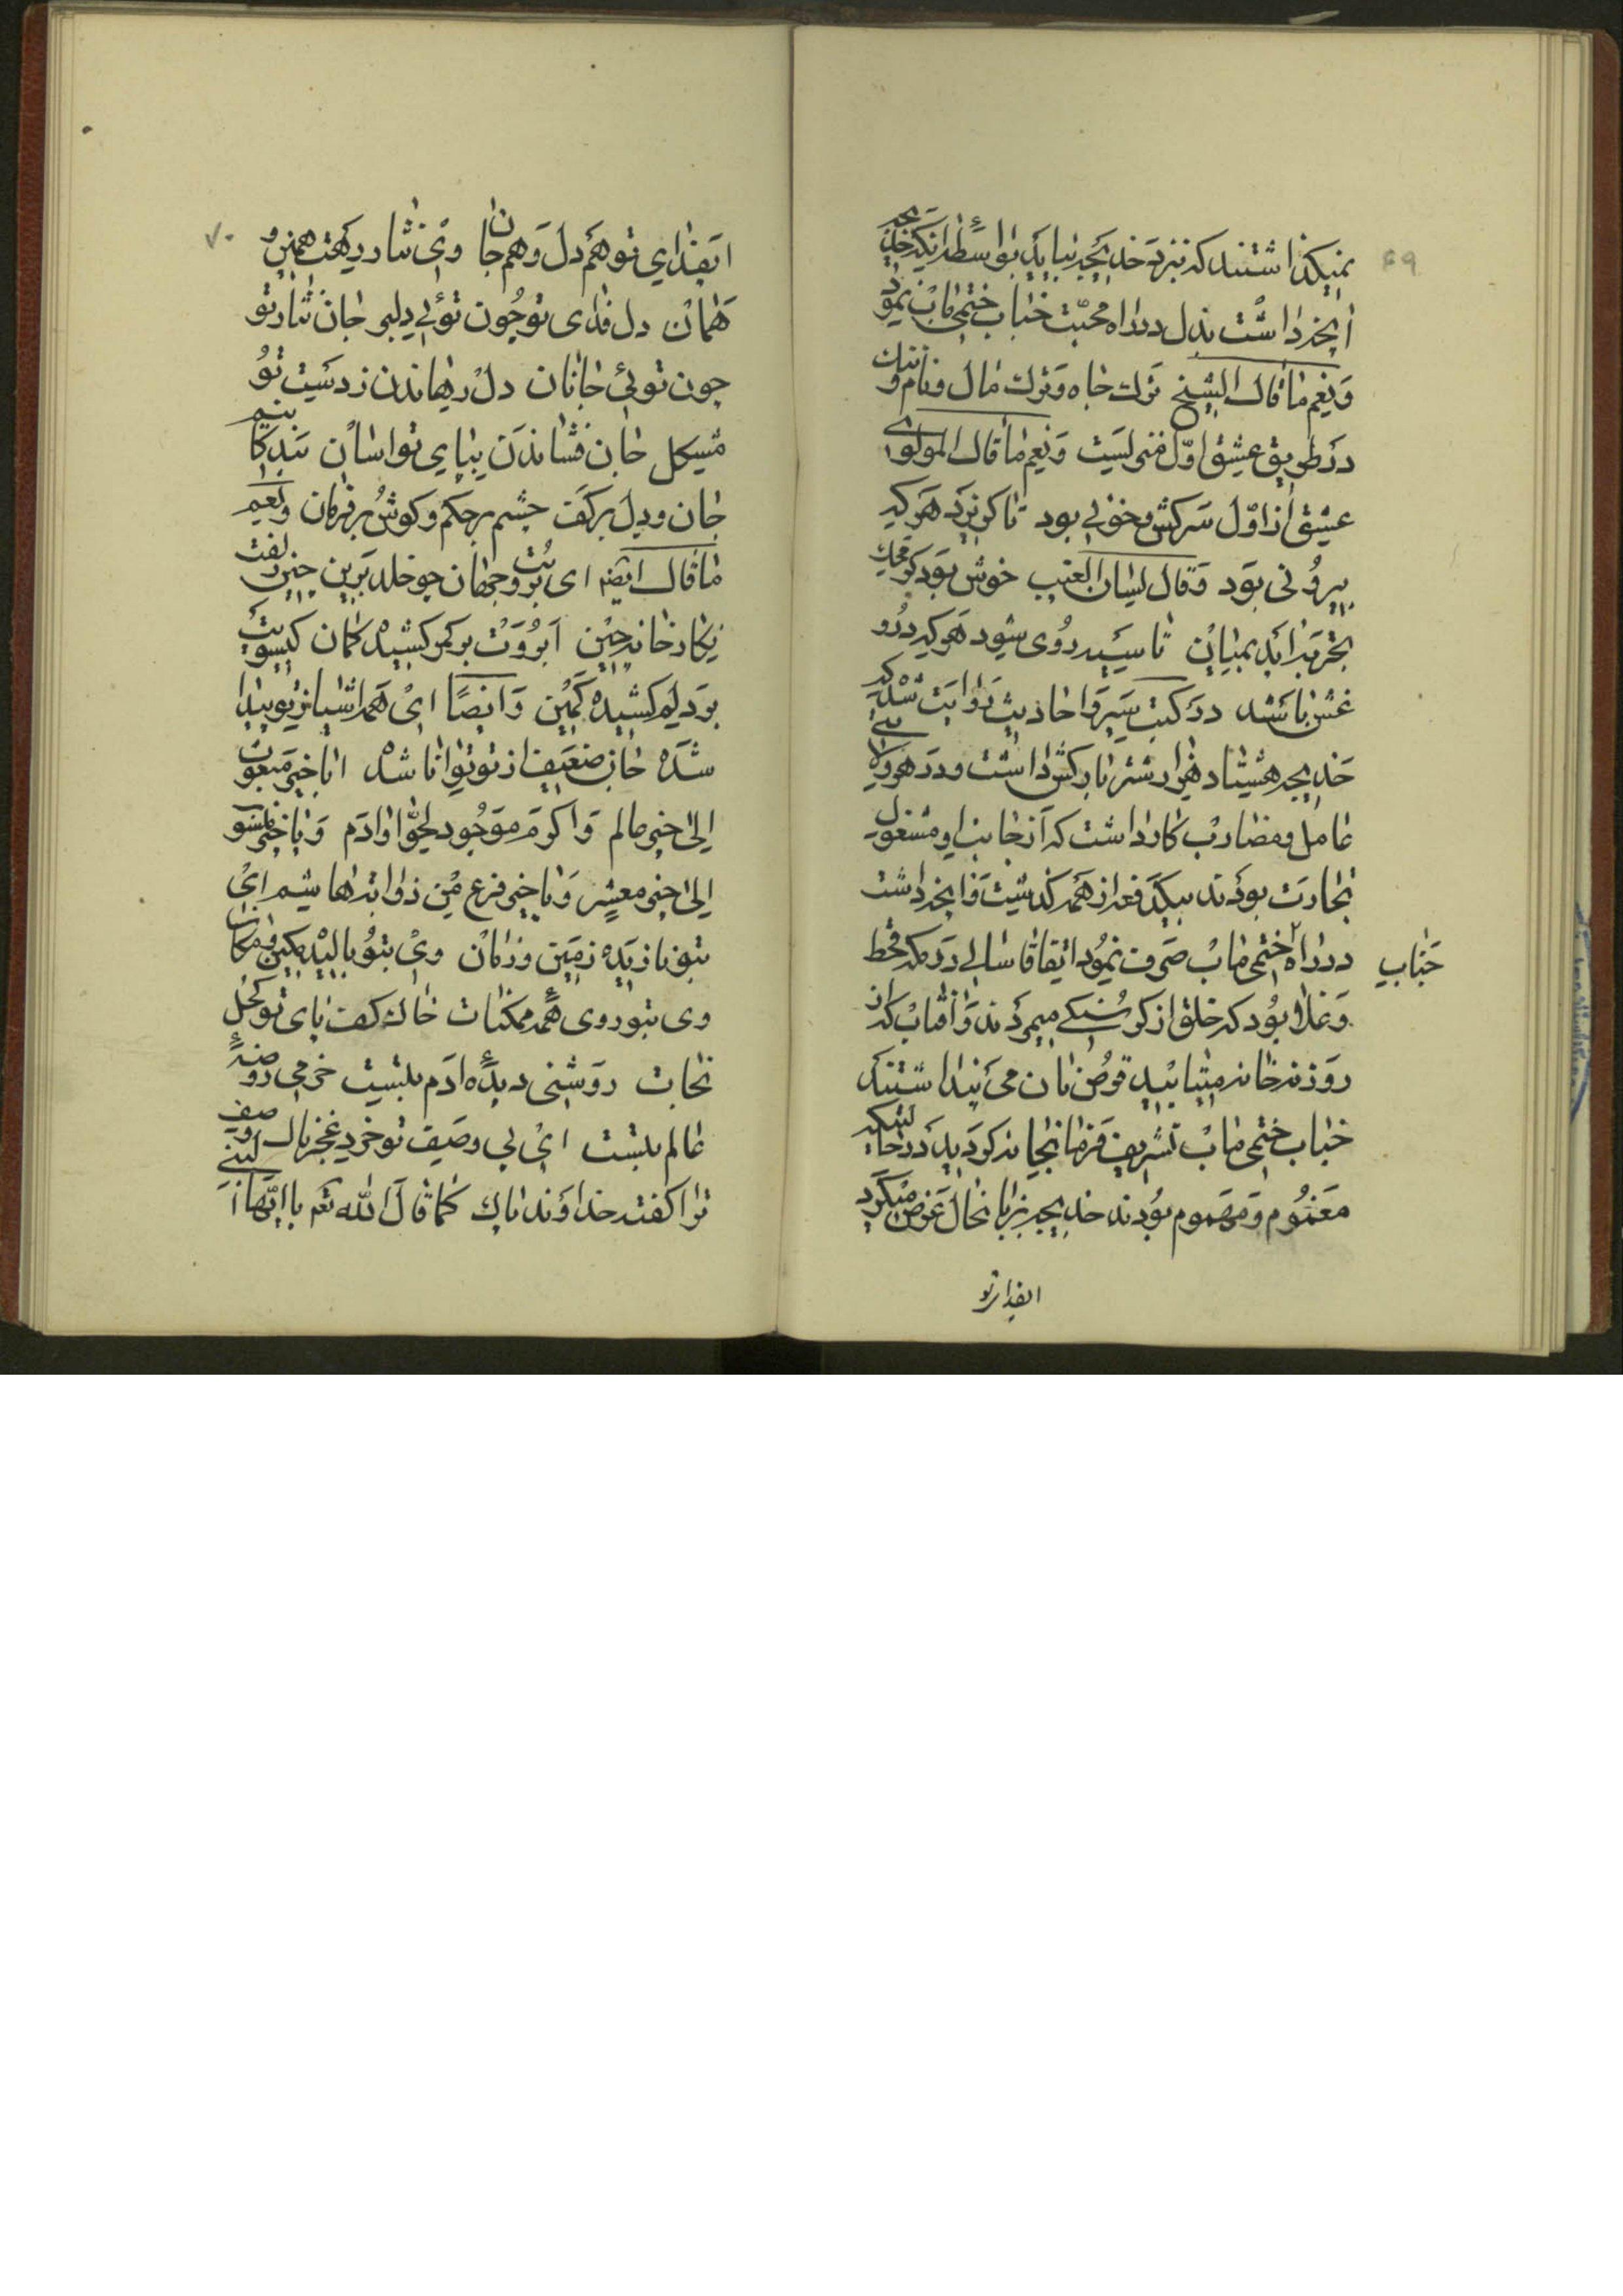 ۶۹
نمیکذاشتند که نزد خدیجه بیاید بواسطه اینکه خدیجه
انچه داشت بذل در راه محبّت جناب ختمی ماب نمود
وَنِعم ما قال الشیخ ترک جاه و ترک مال و نام و ننک
در طریق عشق اوّل منزلست وَنِعم ما قال المولوی
عشق از اوّل سرکش و خونی بود تا کریزد هر که
بیرونی بود وَقال لسان الغیب خوش بود کر محک
تجربه اید بمیان تا سیه روی شود هر که در او
غش باشد در کتب سیر و احادیث روایت شده که
خدیجه هشتاد هزار شتر بارکش داشت و در هر ولایتی
عامل و مضارب کار داشت که از جانب او مشغول
تجارت بودند بیکدفعه از همه کذشت و انچه داشت
در راه ختمی ماب صرف نمود اتفاقا سالی در مکه قحط
جناب
و غلا بود که خلق از کرسنکی میمردند و افتاب که از
روزنه خانه میتابید قرص نان می پنداشتند
جناب ختمی ماب تشریف فرما بخانه کردید در حالتیکه
مغموم و مهموم بودند خدیجه بزبانحال عرض میکرد
ایفدای تو
۷۰
ایفدای تو هم دل و هم جان وی نثار رهت هم این و
هم ان دل فدای تو چون توئی دلبر جان نثار تو
چون توئی جانان دل رهاندن ز دست تو
مشکل جان فشاندن بپای تو اسان بندکانیم
جان و دل بر کف چشم بر حکم و کوش بر فرمان ونعم
ما قال ایضا ای بُت و جهان چو خلد برین چین زلفت
نکارخانه چین ابرُوَت بر کمر کشیده کمان کیسویت
بر دلم کشیده کمین وَایضًا ای همه اشیا ز تو پیدا
شده جان ضعیف از تو توانا شده ایا خیر مبعوث
الی خیر عالم و اکرم موجود لحوّا و ادم وَیا خیر منسو
الی خیر معشر وَیا خیر فرع من ذوابه هاشم ای
بتو نازیده زمین و زمان وی بتو بالیده مکین و مکان
وی بتو روی همه ممکنات خاک کف پای تو کحل
نجات روشنی دیده ادم بتست خرمی روضهٔ
عالم بتست ای پی وصف تو خرد عجز بال وصف
ترا کفته خداوند پاک کما قال الله تعم یا ایّها